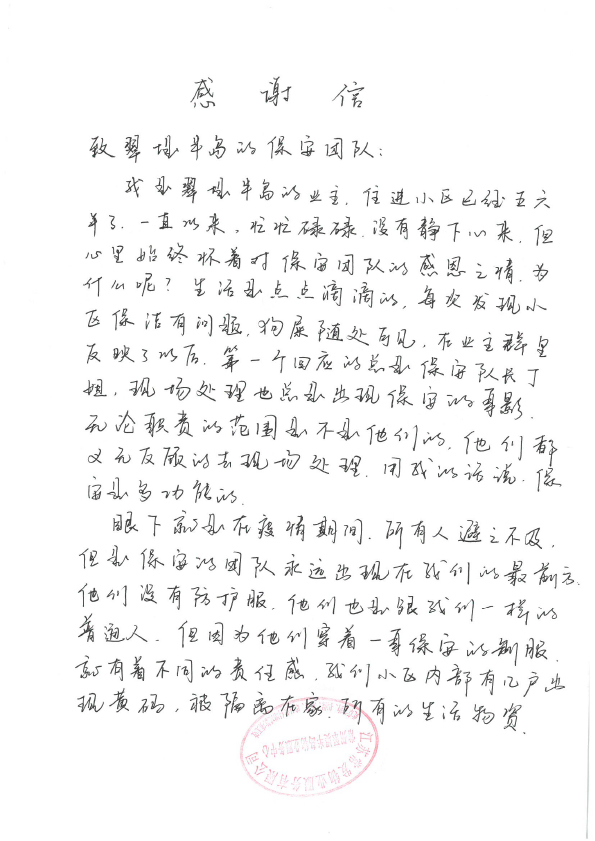 感谢信
致翠堤半岛的保安团队:
我是翠堤半岛的业主,住进小区已经五六
年了.一直以来,忙忙碌碌.没有静下心来.但
心里始终怀着对保安团队的感恩之情.为
什么呢?生活是点点滴滴的,每次发现小
区保洁有问题,狗屎随处可见,在业主群里
反映了以后.第一个回应的总是保安队长丁
姐,现场处理也总是出现保安的身影.
无论职责的范围是不是他们的,他们都
义无反顾的去现场处理.用我的话说.保
安是多功能的.
眼下就是在疫情期间.所有人避之不及.
但是保安的团队永远出现在我们的最前方.
他们没有防护服.他们也是跟我们一样的
普通人.但因为他们穿着一身保安的制服.
就有着不同的责任感.我们小区内部有几户出
现黄码,被隔离在家.所有的生活物资.